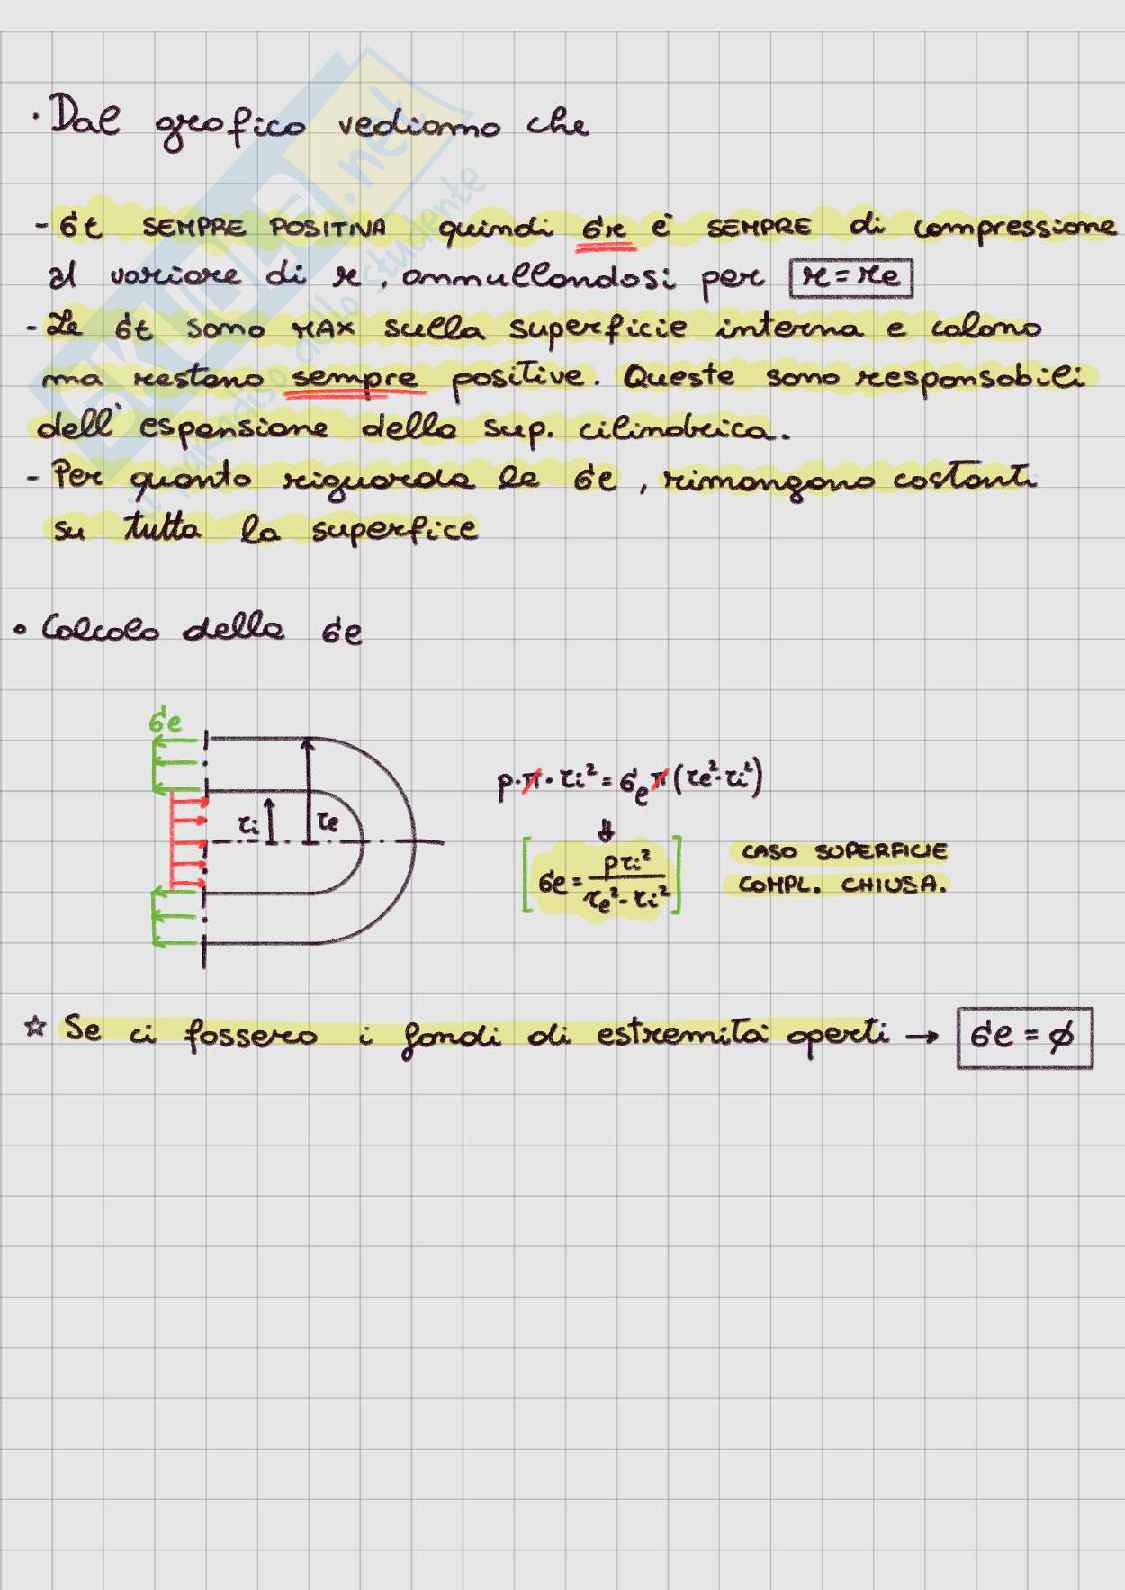 · Dal grafico vediamo che
- σt SEMPRE POSITIVA quindi σr è SEMPRE di compressione
al variare di r, annullandosi per r = re
- Le σt sono MAX sulla superficie interna e calano
ma restano sempre positive. Queste sono responsabili
dell'espansione della sup. cilindrica.
- Per quanto riguarda le σe, rimangono costanti
su tutta la superfice
• Calcolo della σe
σe
ri
re
p·π·ri² = σe π (re²-ri²)
σe = pri² / re² - ri²
CASO SUPERFICIE
COMPL. CHIUSA.
☆ Se ci fossero i fondi di estremità aperti → σe = ∅
SKUOLA.net